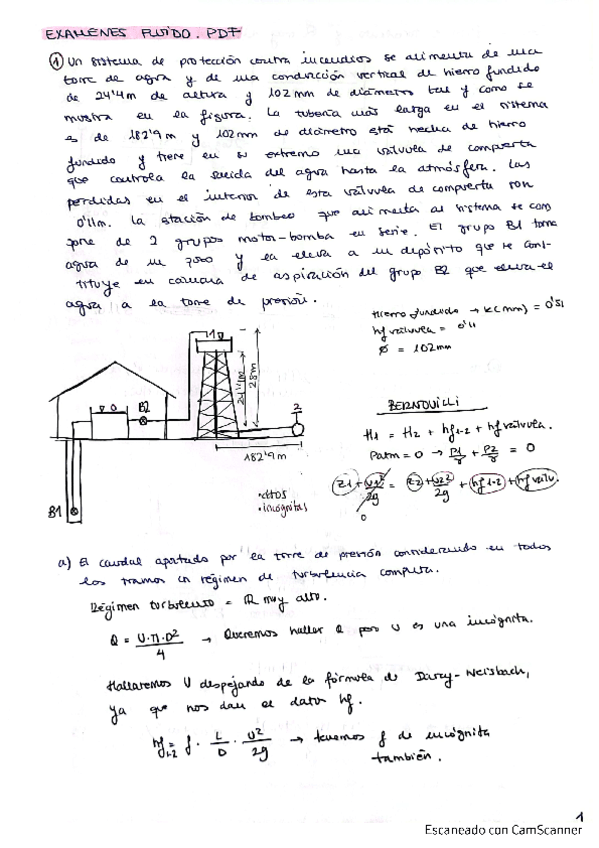 EXÁMENES FLUIDO. PDF
① Un sistema de protección contra incendios se alimenta de una
torre de agua y de una conducción vertical de hierro fundido
de 24'4m de altura y 102 mm de diámetro tal y como se
muestra en la figura. La tubería más larga en el sistema
es de 182'9 m y 102mm de diámetro está hecha de hierro
fundido y tiene en su extremo una válvula de compuerta
que controla la salida del agua hasta la atmósfera. Las
pérdidas en el interior de esta válvula de compuerta son
0'11m. La estación de bombeo que alimenta al sistema se com
pone de 2 grupos motor-bomba en serie. El grupo B1 toma
agua de un pozo y la eleva a un depósito que se cons-
tituye en cámara de aspiración del grupo B2 que eleva el
agua a la torre de presión.
Hierro fundido → K(mm) = 0'51
hf válvula = 0'11
Ø = 102mm
1
0
B2
24'4m
28m
2
182'9 m
B1
• datos
• incógnitas
BERNOUILLI
H1 = H2 + hf1-2 + hf válvula.
Patm = 0 → P1/γ + P2/γ = 0
Z1 + v1²/2g = Z2 + v2²/2g + hf 1-2 + hf valv.
0
a) El caudal aportado por la torre de presión considerando en todos
los tramos un régimen de turbulencia completa.
Régimen turbulento = R muy alto.
Q = V·Π·D²/4 → Queremos hallar Q pero V es una incógnita.
Hallaremos V despejando de la fórmula de Darcy-Weisbach,
ya que nos dan el dato hf.
hf1-2 = f · L/D · v²/2g → tenemos f de incógnita
también.
1
Escaneado con CamScanner